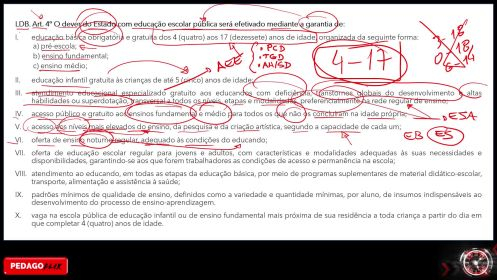 LDB. Art. 4º O dever do Estado com educação escolar pública será efetivado mediante a garantia de:
I. educação básica obrigatória e gratuita dos 4 (quatro) aos 17 (dezessete) anos de idade, organizada da seguinte forma:
a) pré-escola;
b) ensino fundamental;
c) ensino médio;
AEE
• PCD
• TGD
• AH/SD
4-17
II. educação infantil gratuita às crianças de até 5 (cinco) anos de idade;
III. atendimento educacional especializado gratuito aos educandos com deficiência, transtornos globais do desenvolvimento e altas
habilidades ou superdotação, transversal a todos os níveis, etapas e modalidades, preferencialmente na rede regular de ensino;
IV. acesso público e gratuito aos ensinos fundamental e médio para todos os que não os concluíram na idade própria;
V. acesso aos níveis mais elevados do ensino, da pesquisa e da criação artística, segundo a capacidade de cada um;
EB ES
VI. oferta de ensino noturno regular, adequado às condições do educando;
VII. oferta de educação escolar regular para jovens e adultos, com características e modalidades adequadas às suas necessidades e
disponibilidades, garantindo-se aos que forem trabalhadores as condições de acesso e permanência na escola;
VIII. atendimento ao educando, em todas as etapas da educação básica, por meio de programas suplementares de material didático-escolar,
transporte, alimentação e assistência à saúde;
IX. padrões mínimos de qualidade de ensino, definidos como a variedade e quantidade mínimas, por aluno, de insumos indispensáveis ao
desenvolvimento do processo de ensino-aprendizagem.
X. vaga na escola pública de educação infantil ou de ensino fundamental mais próxima de sua residência a toda criança a partir do dia em
que completar 4 (quatro) anos de idade.
PEDAGOFLIX